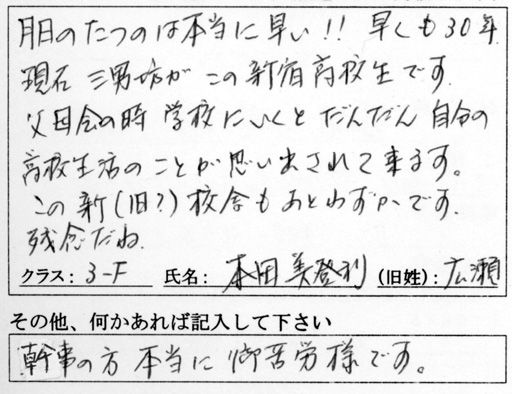 月日のたつのは本当に早い!! 早くも30年
現在 三男坊が この新宿高校生です.
父母会の時 学校にいくと だんだん 自分の
高校生活のことが思い出されて来ます。
この 新(旧?)校舎も あとわずかです.
残念だね.
クラス: 3-F 氏名: 本田 美登利 (旧姓): 広瀬
その他、何かあれば記入して下さい
幹事の方 本当に 御苦労様です。